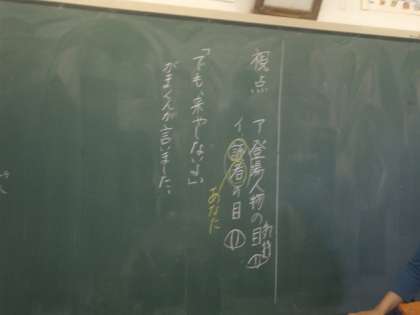 視点 ア 登場人物の目
イ 話者の目
あなた
「でも、来やしないよ」
がまくんが言いました。